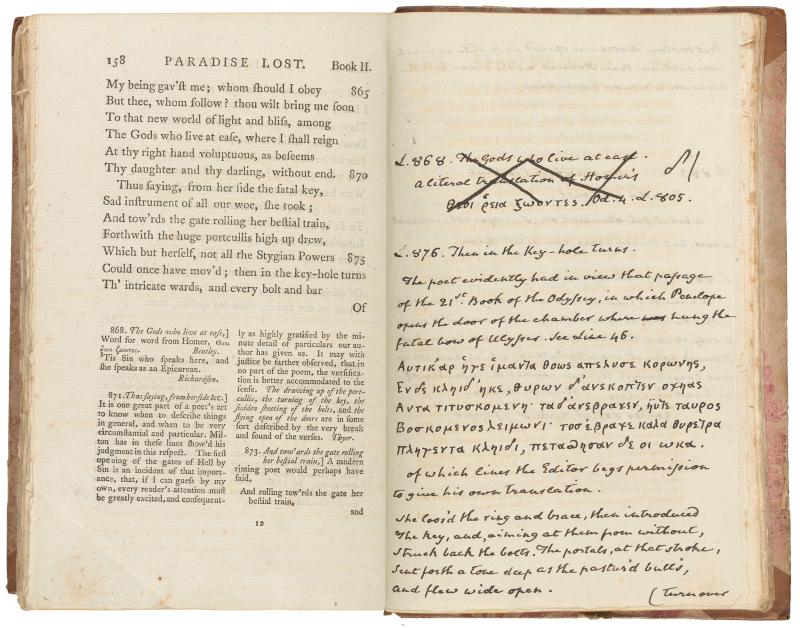 158 PARADISE LOST. Book II.
My being gav'ſt me; whom ſhould I obey 865
But thee, whom follow? thou wilt bring me ſoon
To that new world of light and bliſs, among
The Gods who live at eaſe, where I ſhall reign
At thy right hand voluptuous, as beſeems
Thy daughter and thy darling, without end. 870
Thus ſaying, from her ſide the fatal key,
Sad inſtrument of all our woe, ſhe took;
And tow'rds the gate rolling her beſtial train,
Forthwith the huge portcullis high up drew,
Which but herſelf, not all the Stygian Powers 875
Could once have mov'd; then in the key-hole turns
Th' intricate wards, and every bolt and bar
Of
868. The Gods who live at eaſe,]
Word for word from Homer, Θεοι
ζωοντες. Bentley.
'Tis Sin who ſpeaks here, and
ſhe ſpeaks as an Epicurean.
Richardſon.
871. Thus ſaying, from her ſide &c.]
It is one great part of a poet's art
to know when to deſcribe things
in general, and when to be very
circumſtantial and particular. Mil-
ton has in theſe lines ſhow'd his
judgment in this reſpect. The firſt
opening of the gates of Hell by
Sin is an incident of that import-
ance, that, if I can gueſs by my
own, every reader's attention muſt
be greatly excited, and conſequent-
ly as highly gratified by the mi-
nute detail of particulars our au-
thor has given us. It may with
juſtice be farther obſerved, that in
no part of the poem, the verſifica-
tion is better accommodated to the
ſenſe. The drawing up of the port-
cullis, the turning of the key, the
ſudden ſhooting of the bolts, and the
flying open of the doors are in ſome
ſort deſcribed by the very break
and ſound of the verſes. Thyer.
873. And tow'ards the gate rolling
her beſtial train,] A modern
riming poet would perhaps have
ſaid,
And rolling tow'rds the gate her
beſtial train,
and
12
L. 868. The Gods who live at ease.
a literal translation of Homer's
θεοι ῥεια ζωοντες. Od. 4. L. 805.
L. 876. Then in the Key-hole turns.
The poet evidently had in view that passage
of the 21st Book of the Odyssey, in which Penelope
opens the door of the chamber where was hung the
fatal bow of Ulysses. See Line 46.
Αυτικ' αρ ηγε ιμαντα θοως απελυσε κορωνης,
Εν δε κληιδ' ηκε, θυρων δ' ανεκοπτεν οχηας
Αντα τιτυσκομενη· τα δ' ανεβραχεν, ηϋτε ταυρος
Βοσκομενος λειμωνι· τοσ' εβραχε καλα θυρετρα
Πληγεντα κληιδι, πετασθησαν δε οι ωκα.
of which lines the Editor begs permission
to give his own translation.
She loos'd the ring and brace, then introduced
The key, and, aiming at them from without,
Struck back the bolts. The portals, at that stroke,
Sent forth a tone deep as the pastur'd bull's,
and flew wide open. (turn over